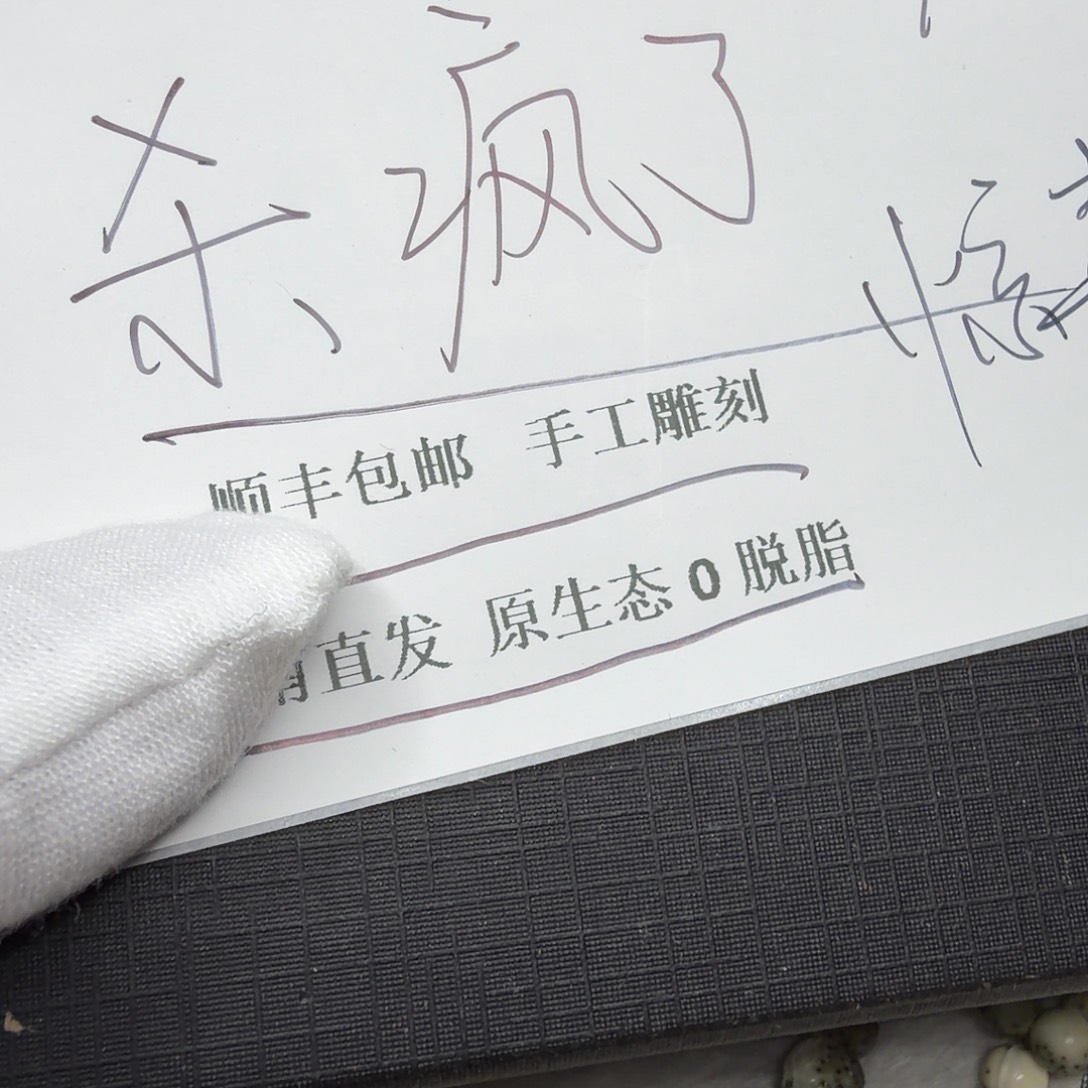 杀疯了
顺丰包邮 手工雕刻
直发 原生态0脱脂